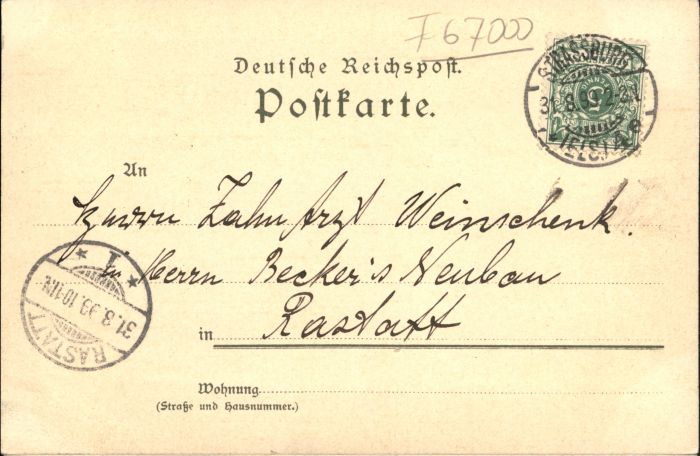 I 67000
Deutsche Reichspost.
Postkarte.
STRASSBURG
31.8.9
5
(ELS.)
e
An
Herrn Zahnarzt Weinschenk.
in Herrn Becker's Neubau
in Rastatt
* 1 *
31.8.99.10-11N.
RASTATT
Wohnung
(Straße und Hausnummer.)